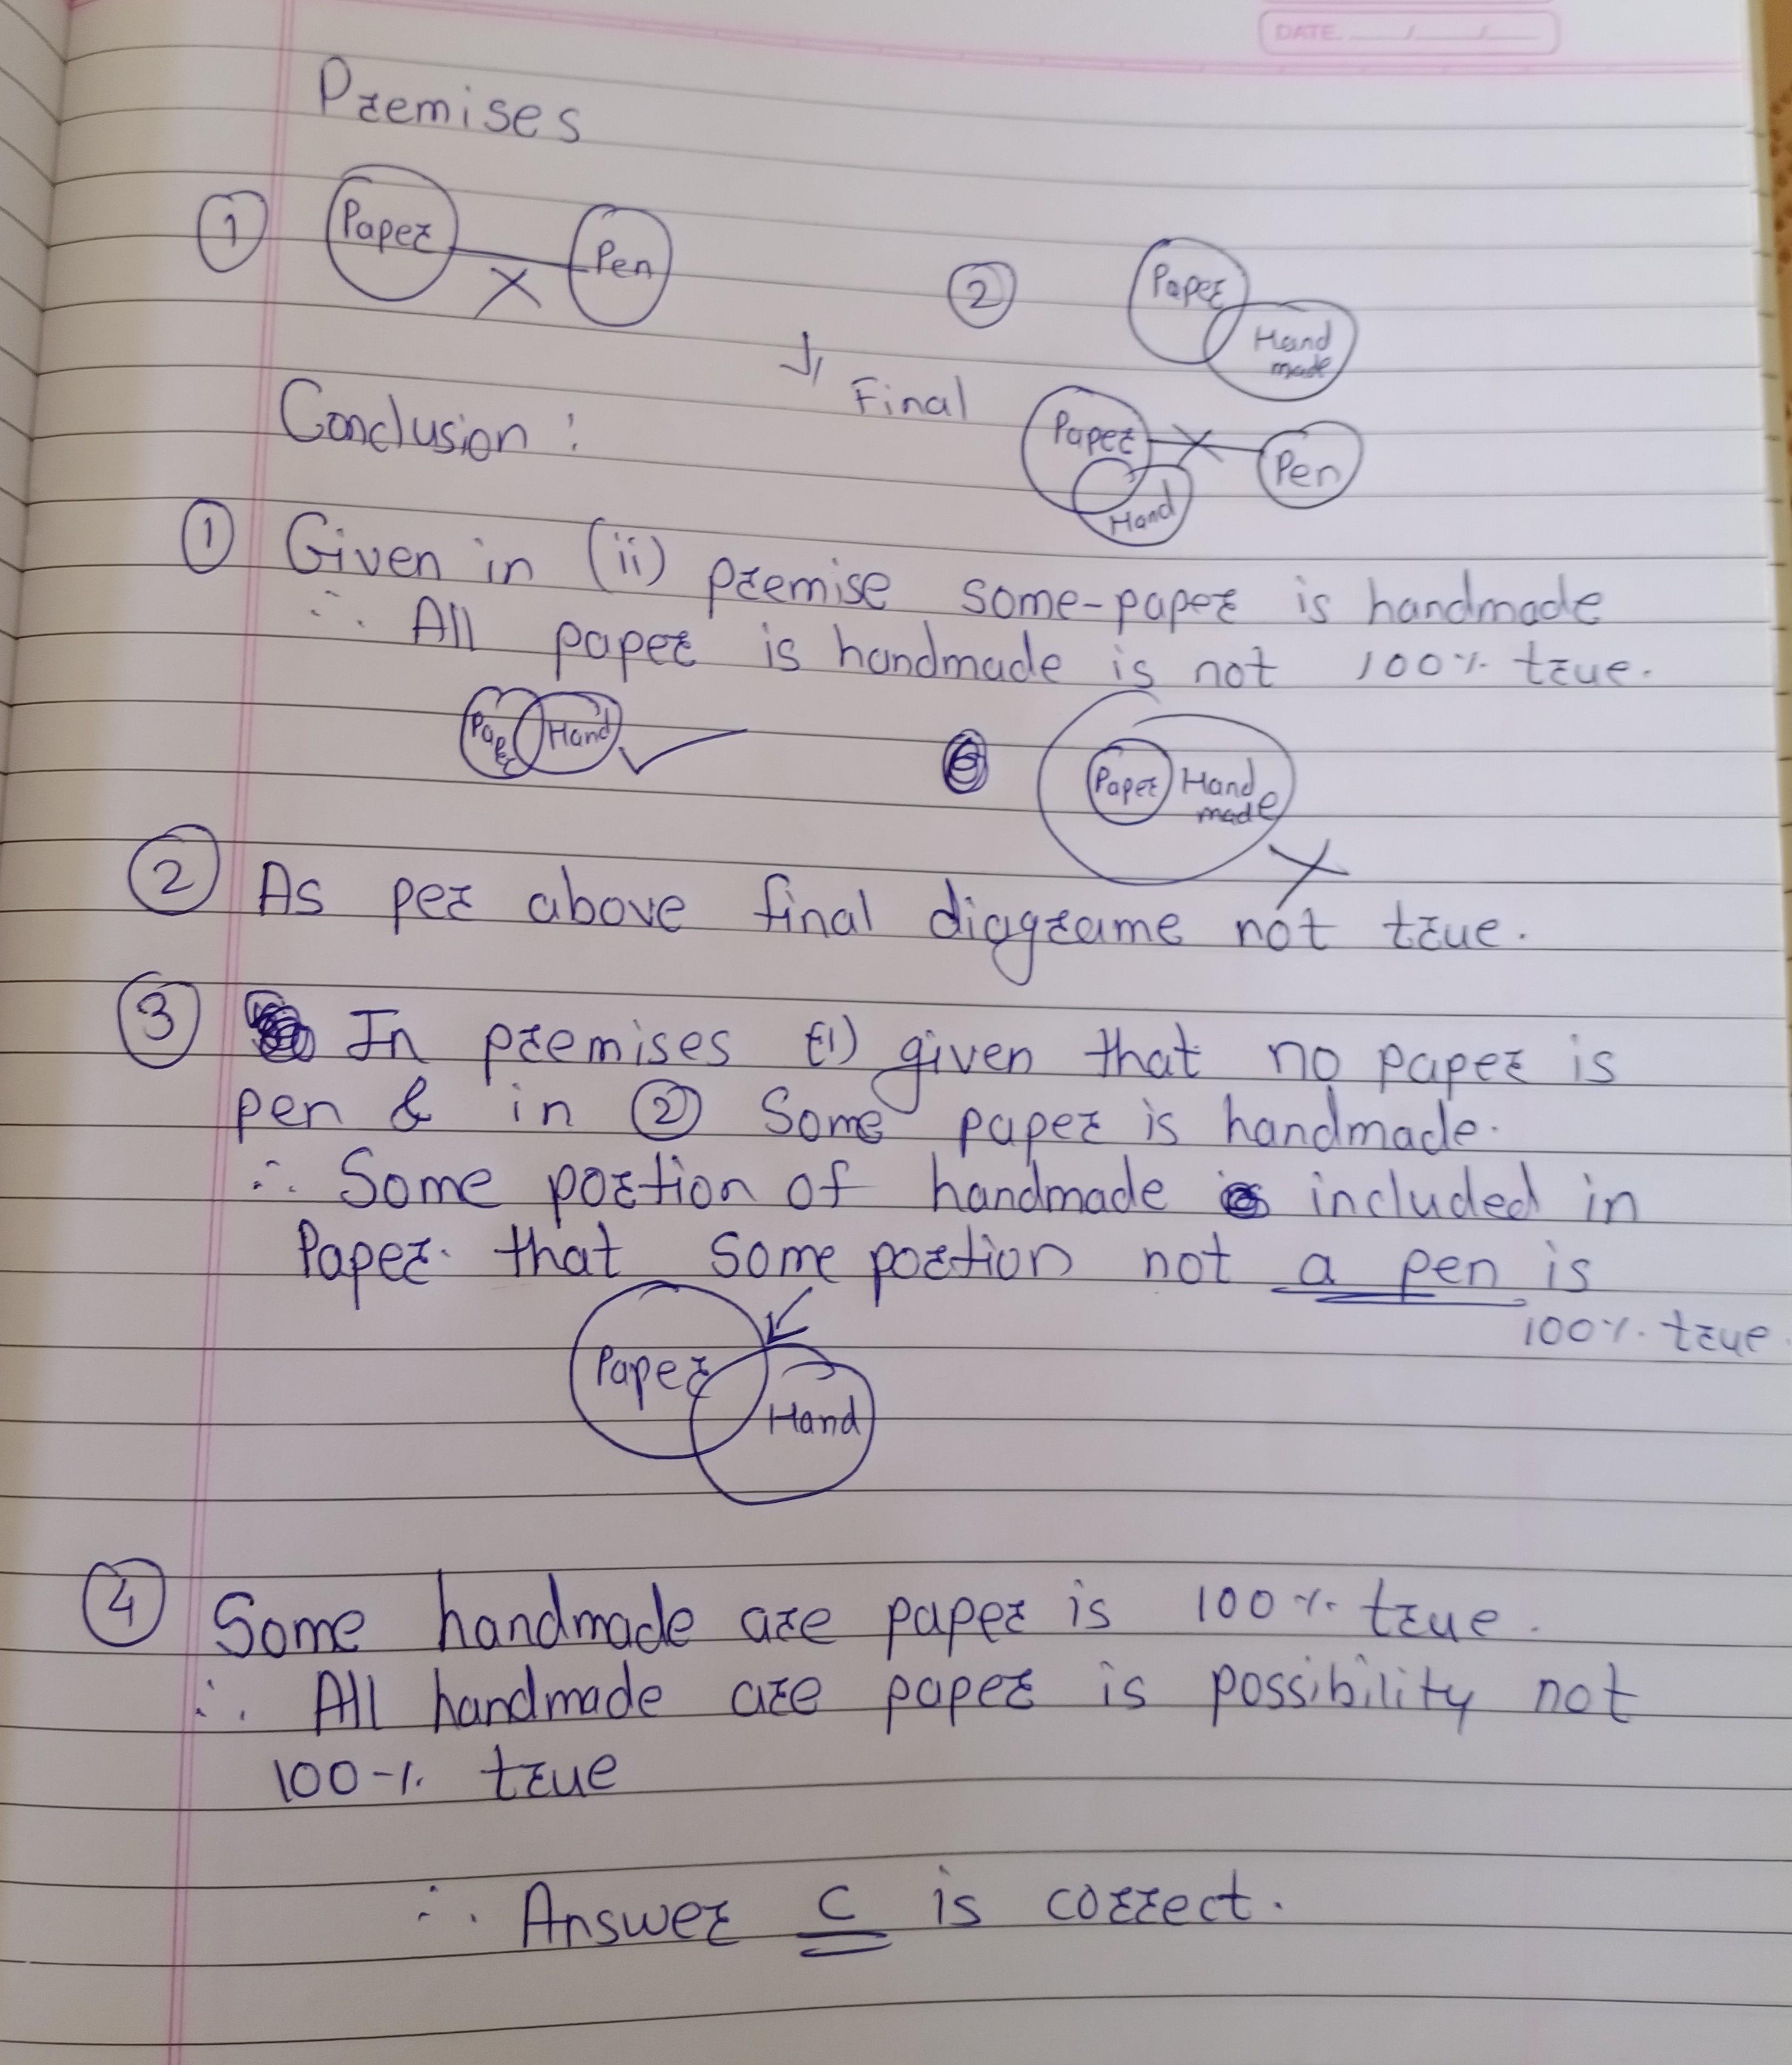 DATE. __/__/__
Premises
① Paper Pen
② Paper Hand made
↓ Final
Paper Pen Hand
Conclusion :
① Given in (ii) premise some-paper is handmade
∴ All paper is handmade is not 100% true.
Paper Hand ✓ Paper Hand made X
② As per above final diagrame not true.
③ In premises (i) given that no paper is
pen & in ② Some paper is handmade.
∴ Some portion of handmade included in
Paper. that some portion not a pen is
100% true.
Paper Hand
④ Some handmade are paper is 100% true.
∴ All handmade are paper is possibility not
100% true
∴ Answer C is correct.